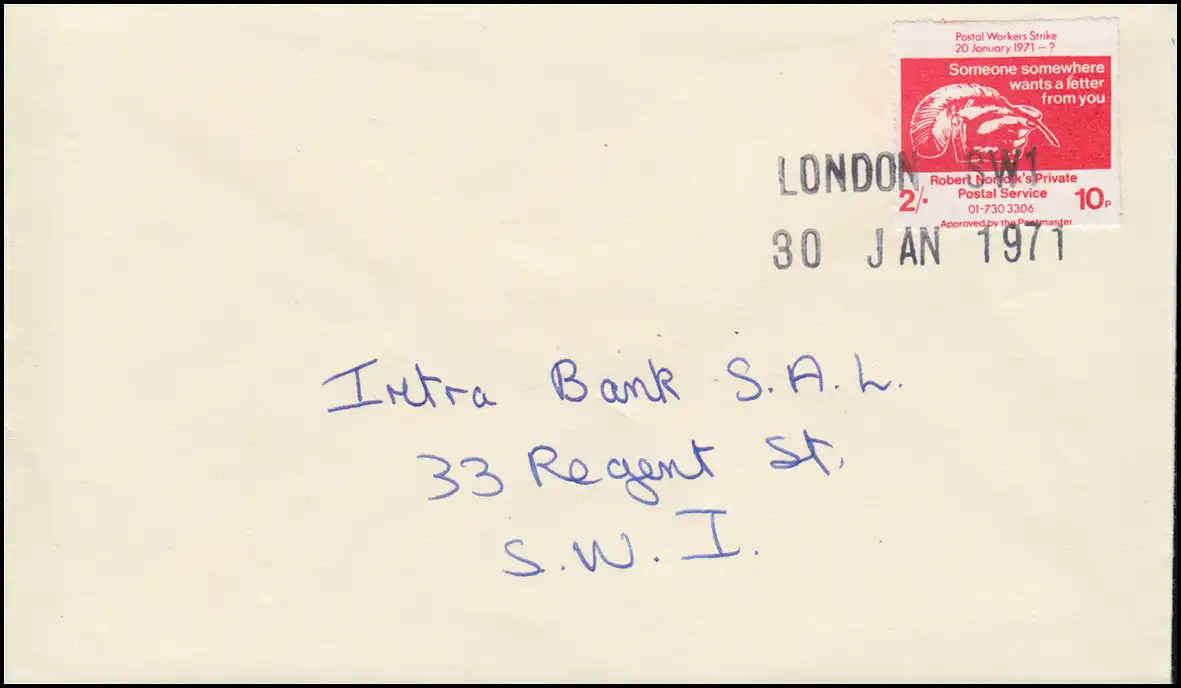 Postal Workers Strike
20 January 1971 – ?
Someone somewhere
wants a letter
from you
Robert Norfolk's Private
Postal Service
2/- 10P
01-730 3306
Approved by the Postmaster
LONDON SW1
30 JAN 1971
Intra Bank S.A.L.
33 Regent St.
S.W.I.